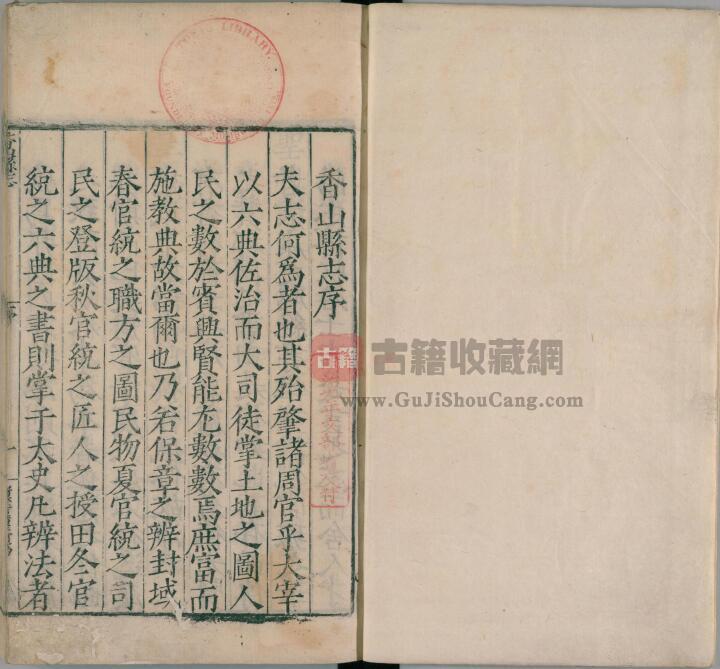 香山縣志序
夫志何爲者也其殆肇諸周官乎大宰
以六典佐治而大司徒掌土地之圖人
民之數於賓興賢能尤數數焉庶富而
施教典故當爾也乃若保章之辨封域
春官統之職方之圖民物夏官統之司
民之登版秋官統之匠人之授田冬官
統之六典之書則掌于太史凡辨法者
古籍 古籍收藏網
www.GuJiShouCang.com
LIBRARY